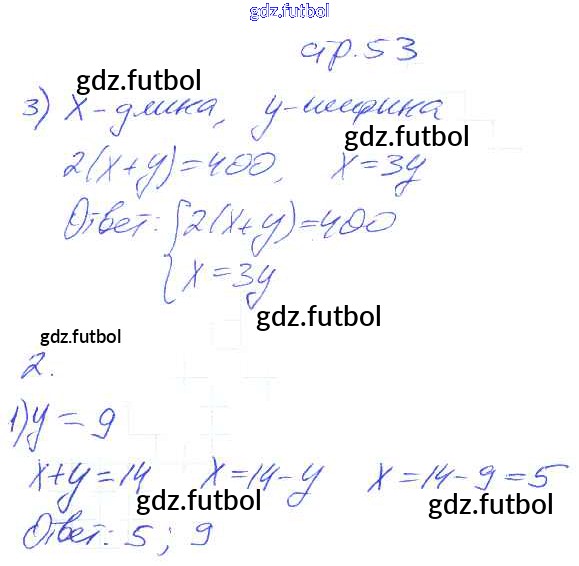 gdz.futbol
стр.53
gdz.futbol
3) x - длина, y - ширина
gdz.futbol
2(x+y)=400, x=3y
Ответ: { 2(x+y)=400
x=3y
gdz.futbol
gdz.futbol
2.
1) y = 9
x+y=14 x=14-y x=14-9=5
gdz.futbol gdz.futbol
Ответ: 5; 9